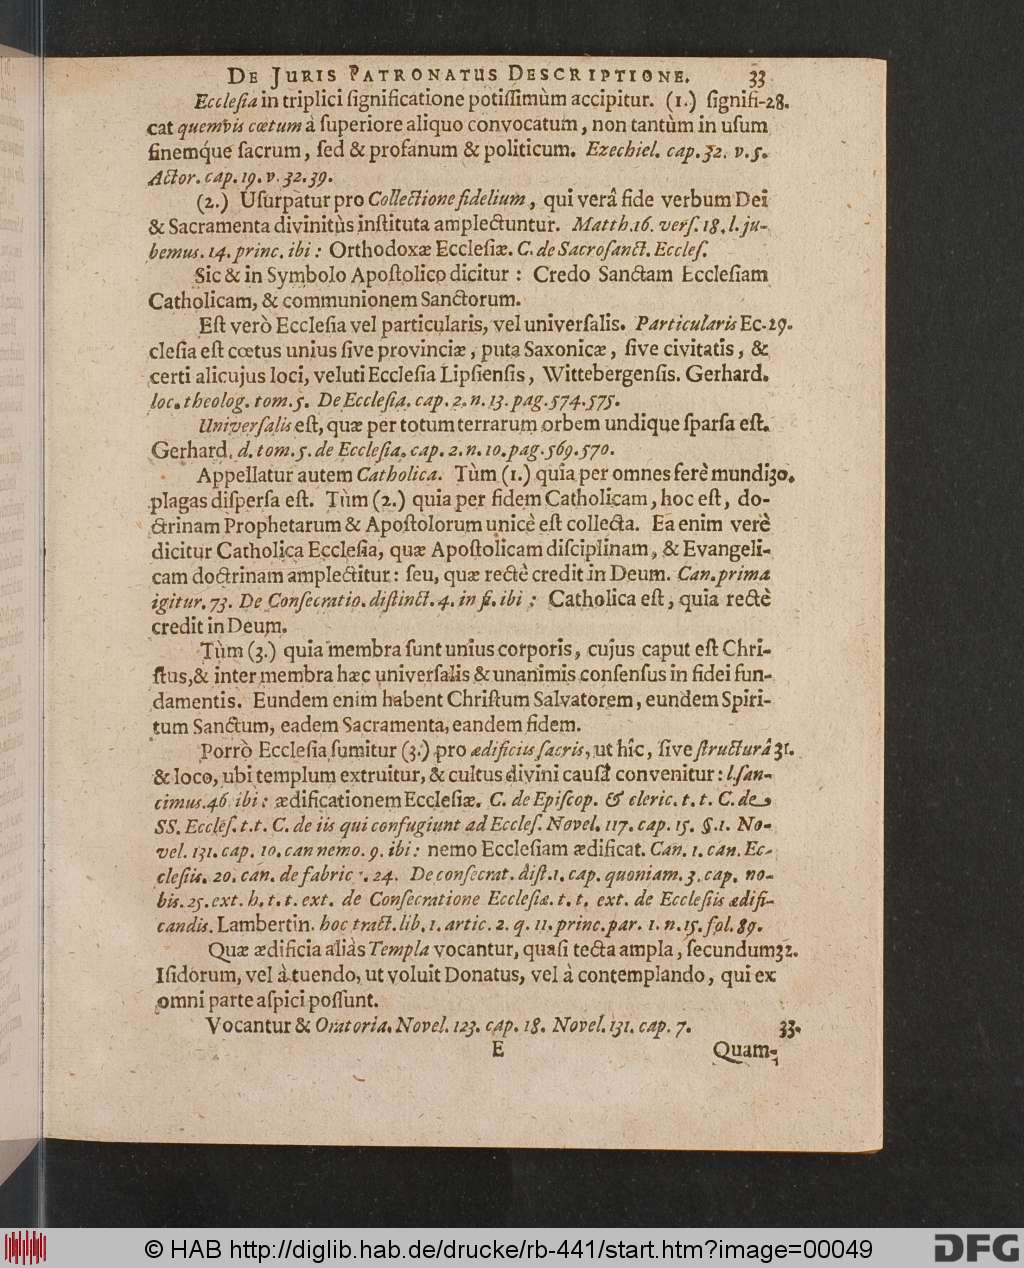 DE JURIS PATRONATUS DESCRIPTIONE. 33
Eccleſia in triplici ſignificatione potiſſimùm accipitur. (1.) ſignifi- 28.
cat quemvis cœtum à ſuperiore aliquo convocatum, non tantùm in uſum
finemq́ue ſacrum, ſed & profanum & politicum. Ezechiel. cap. 32. v. 5.
Actor. cap. 19. v. 32. 39.
(2.) Uſurpatur pro Collectione fidelium, qui verâ fide verbum Dei
& Sacramenta divinitùs inſtituta amplectuntur. Matth. 16. verſ. 18. l. ju-
bemus. 14. princ. ibi: Orthodoxæ Eccleſiæ. C. de Sacroſanct. Eccleſ.
Sic & in Symbolo Apoſtolico dicitur: Credo Sanctam Eccleſiam
Catholicam, & communionem Sanctorum.
Eſt verò Eccleſia vel particularis, vel univerſalis. Particularis Ec- 29.
cleſia eſt cœtus unius ſive provinciæ, puta Saxonicæ, ſive civitatis, &
certi alicujus loci, veluti Eccleſia Lipſienſis, Wittebergenſis. Gerhard.
loc. theolog. tom. 5. De Eccleſia. cap. 2. n. 13. pag. 574. 575.
Univerſalis eſt, quæ per totum terrarum orbem undique ſparſa eſt.
Gerhard. d. tom. 5. de Eccleſia. cap. 2. n. 10. pag. 569. 570.
Appellatur autem Catholica. Tùm (1.) quia per omnes ferè mundi 30.
plagas diſperſa eſt. Tùm (2.) quia per fidem Catholicam, hoc eſt, do-
ctrinam Prophetarum & Apoſtolorum unicè eſt collecta. Ea enim verè
dicitur Catholica Eccleſia, quæ Apoſtolicam diſciplinam, & Evangeli-
cam doctrinam amplectitur: ſeu, quæ rectè credit in Deum. Can. prima
igitur. 73. De Conſecratio. diſtinct. 4. in fi. ibi: Catholica eſt, quia rectè
credit in Deum.
Tùm (3.) quia membra ſunt unius corporis, cujus caput eſt Chri-
ſtus, & inter membra hæc univerſalis & unanimis conſenſus in fidei fun-
damentis. Eundem enim habent Chriſtum Salvatorem, eundem Spiri-
tum Sanctum, eadem Sacramenta, eandem fidem.
Porrò Eccleſia ſumitur (3.) pro ædificius ſacris, ut hîc, ſive ſtructurâ 31.
& loco, ubi templum extruitur, & cultus divini cauſâ convenitur: l. ſan-
cimus. 46 ibi: ædificationem Eccleſiæ. C. de Epiſcop. & cleric. t. t. C. de
SS. Eccleſ. t. t. C. de iis qui confugiunt ad Eccleſ. Novel. 117. cap. 15. §. 1. No-
vel. 131. cap. 10. can nemo. 9. ibi: nemo Eccleſiam ædificat. Can. 1. can. Ec-
cleſiis. 20. can. de fabric. 24. De conſecrat. diſt. 1. cap. quoniam. 3. cap. no-
bis. 25. ext. h. t. t. ext. de Conſecratione Eccleſiæ. t. t. ext. de Eccleſiis ædifi-
candis. Lambertin. hoc tract. lib. 1. artic. 2. q. 11. princ. par. 1. n. 15. fol. 89.
Quæ ædificia aliàs Templa vocantur, quaſi tecta ampla, ſecundum 32.
Iſidorum, vel à tuendo, ut voluit Donatus, vel à contemplando, qui ex
omni parte aſpici poſſunt.
Vocantur & Oratoria. Novel. 123. cap. 18. Novel. 131. cap. 7. 33.
E Quam-
© HAB http://diglib.hab.de/drucke/rb-441/start.htm?image=00049
DFG